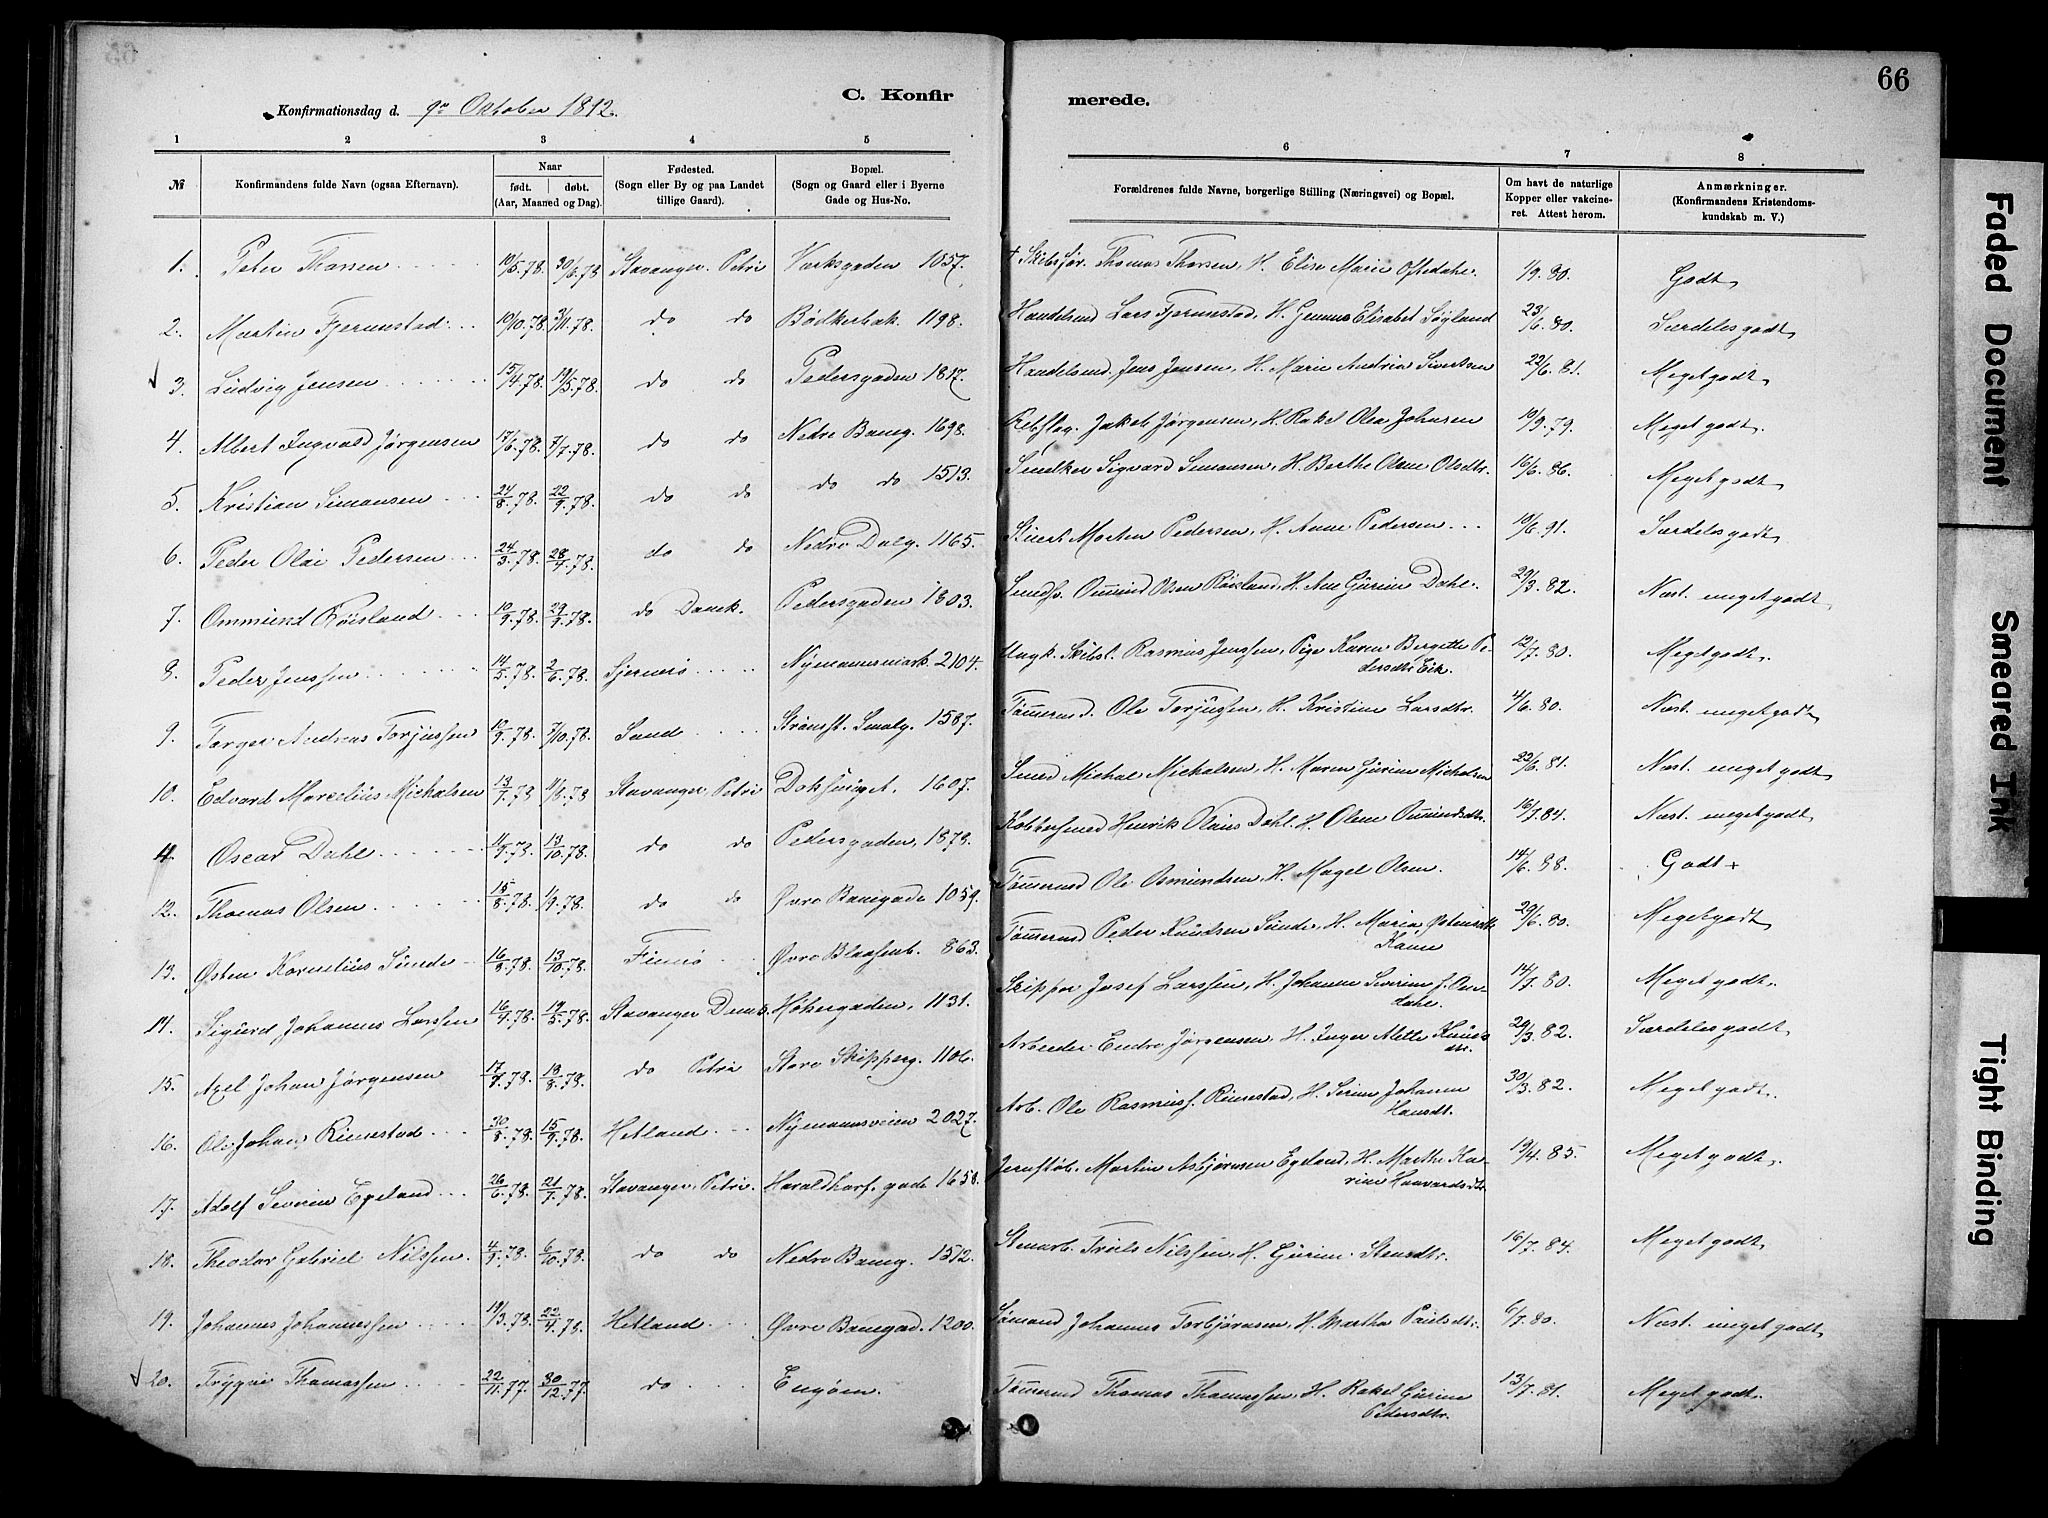 66
C. Konfir merede.
Konfirmationsdag d. 9de Oktober 1892.
1 2 3 4 5 6 7 8
№ Konfirmandens fulde Navn (ogsaa Efternavn). Naar født. døbt. (Aar, Maaned og Dag). Fødested. (Sogn eller By og paa Landet tillige Gaard). Bopæl. (Sogn og Gaard eller i Byerne Gade og Hus-No. Forældrenes fulde Navne, borgerlige Stilling (Næringsvei) og Bopæl. Om havt de naturlige Kopper eller vakcineret. Attest herom. Anmærkninger. (Konfirmandens Kristendomskundskab m. V.)
1. Peter Thorsen 10/5.78. 30/6.78 Stavanger. Petri Værksgaden 1057. † Skibsfør. Thomas Thorsen, H. Elise Marie Oftedahl. 1/9.80. Godt
2. Martin Fjermestad 10/10.78. 3/11.78. do do Bødkerbak. 1198. Handelsmd Lars Fjermestad, H. Elisabet Søyland 23/6.80. Særdeles godt
3. Ludvig Jensen 15/4.78. 19/5.78. do do Pedersgaden 1817. Handelsmd. Jens Jensen, H. Marie Andrea Sivertsen 22/6.81. Meget godt
4. Albert Ingvald Jørgensen 17/6.78. 7/7.78. do do Nedre Baneg. 1698. Rebslag. Jakob Jørgensen, H. Rakel Olea Johnsen 10/9.79. Meget godt.
5. Kristian Simonsen 24/8.78. 22/9.78. do do do do 1513. Snedker Sigvard Simonsen, H. Berthe Olene Olsdtr. 16/6.86. Meget godt
6. Peder Olai Pedersen 24/3.78. 28/4.78. do do Nedre Dalg. 1165. Stuert Morten Pedersen, H. Anne Pedersen 10/6.91. Særdeles godt
7. Ommund Røisland 10/9.78. 29/9.78. do Domk. Pedersgaden 1803. Smedsv. Ommund Olsen Røisland, H. Ane Gurine Dahl. 29/3.82. Næst. meget godt
8. Peder Jenssen 14/5.78. 2/6.78. Sjernerø Nymannsmark. 2104. Ungk. Skibst. Rasmus Jenssen, Pige Karen Bergitte Pedersdtr Eik. 12/7.80. Meget godt.
9. Torger Andreas Torjussen 10/9.78. 7/10.78. Sand Strømst. Smalg. 1587. Tømermd. Ole Torjussen, H. Kristine Larsdtr. 4/6.80. Næst. meget godt
10. Edvard Marcelius Michalsen 13/7.78 11/8.78 Stavanger, Petri Doksmuget. 1607. Smed Michal Michalsen, H. Maren Gurine Michalsen 22/6.81. Næst. meget godt
11. Oscar Dahl 11/9.78. 13/10.78. do do Pedersgaden, 1878. Kobbersmed Henrik Olaus Dahl. H. Olene Ommundsdtr. 16/7.84. Næst. meget godt
12. Thomas Olsen 15/8.78. 1/9.78. do do Øvre Banegade 1059. Tømermd Ole Osmundsen, H. Magel Olsen. 14/6.88. Godt +
13. Østen Kornelius Sunde 16/9.78. 13/10.78. Finnø Øvre Blaasenb. 863. Tømermd Peder Knudsen Sunde, H. Maria Østensdtr 29/6.80. Meget godt
14. Sigurd Johannes Larssen 16/4.78. 19/5.78. Stavanger Domk. Høkergaden, 1131. Skipper Josef Larssen, H. Johanne Severine 14/7.80. Meget godt.
15. Axel Johan Jørgensen 17/7.78. 18/8.78. do Petri Store Skipperg. 1106. Arbeider Endre Jørgensen, H. Inger Mette Knudsdtr. 29/3.82. Særdeles godt
16. Ole Johan Rimestad 30/8.78. 15/9.78. Hetland Nymannsveien 2027. Arb. Ole Rasmuss. Rimestad, H. Serine Johanne Hansdt. 30/3.82. Meget godt.
17. Adolf Severin Egeland 26/6.78. 21/7.78. Stavanger, Petri. Haraldhaarf. gade 1658. Jernstøb. Martin Asbjørnsen Egeland, H. Marthe Karine Haavardsdtr. 19/4.85. Meget godt.
18. Theodor Gabriel Nilssen. 4/9.78. 6/10.78. do do Nedre Baneg. 1512. Stenarb. Truls Nilssen, H. Gurine Stensdtr. 16/7.84. Meget godt
19. Johannes Johannessen 19/3.78. 22/4.78. Hetland Øvre Banegad. 1200. Sømand Johannes Torbjørnsen, H. Martha Paulsdtr. 6/7.80. Næst. meget godt
20. Trygve Thomassen 22/11.77. 30/12.77. do Engøen. Tømermd Thomas Thomassen, H. Rakel Gurine Pedersdtr. 13/7.81. Meget godt.
Faded Document
Smeared Ink
Tight Binding